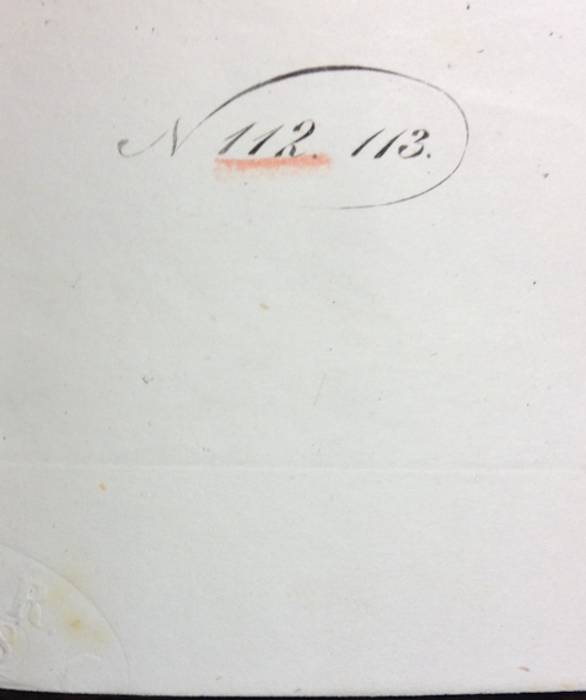 N 112. 113.